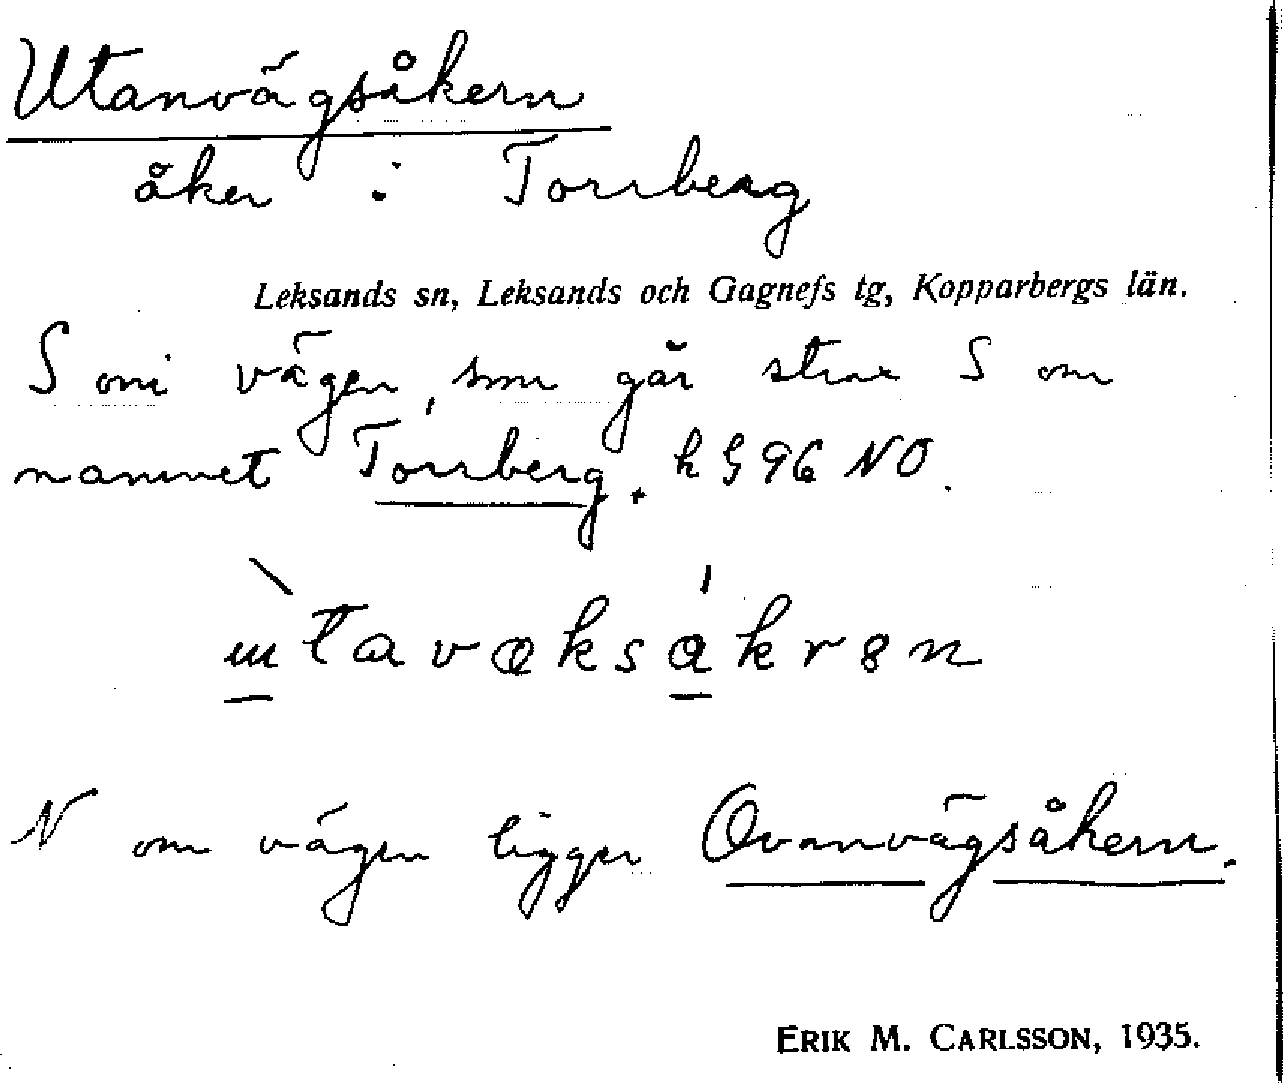 Utanvägsåkern
åker i Torrberg
Leksands sn, Leksands och Gagnefs tg, Kopparbergs län.
S om vägen, som går strax S om
namnet Torrberg. k G 96 NO.
N om vägen ligger Ovanvägsåkern.
ERIK M. CARLSSON, 1935.